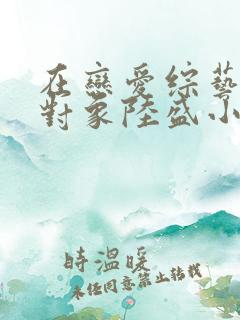 在戀愛綜藝
對象陸盛小
時溫暖
未經同意禁止轉載